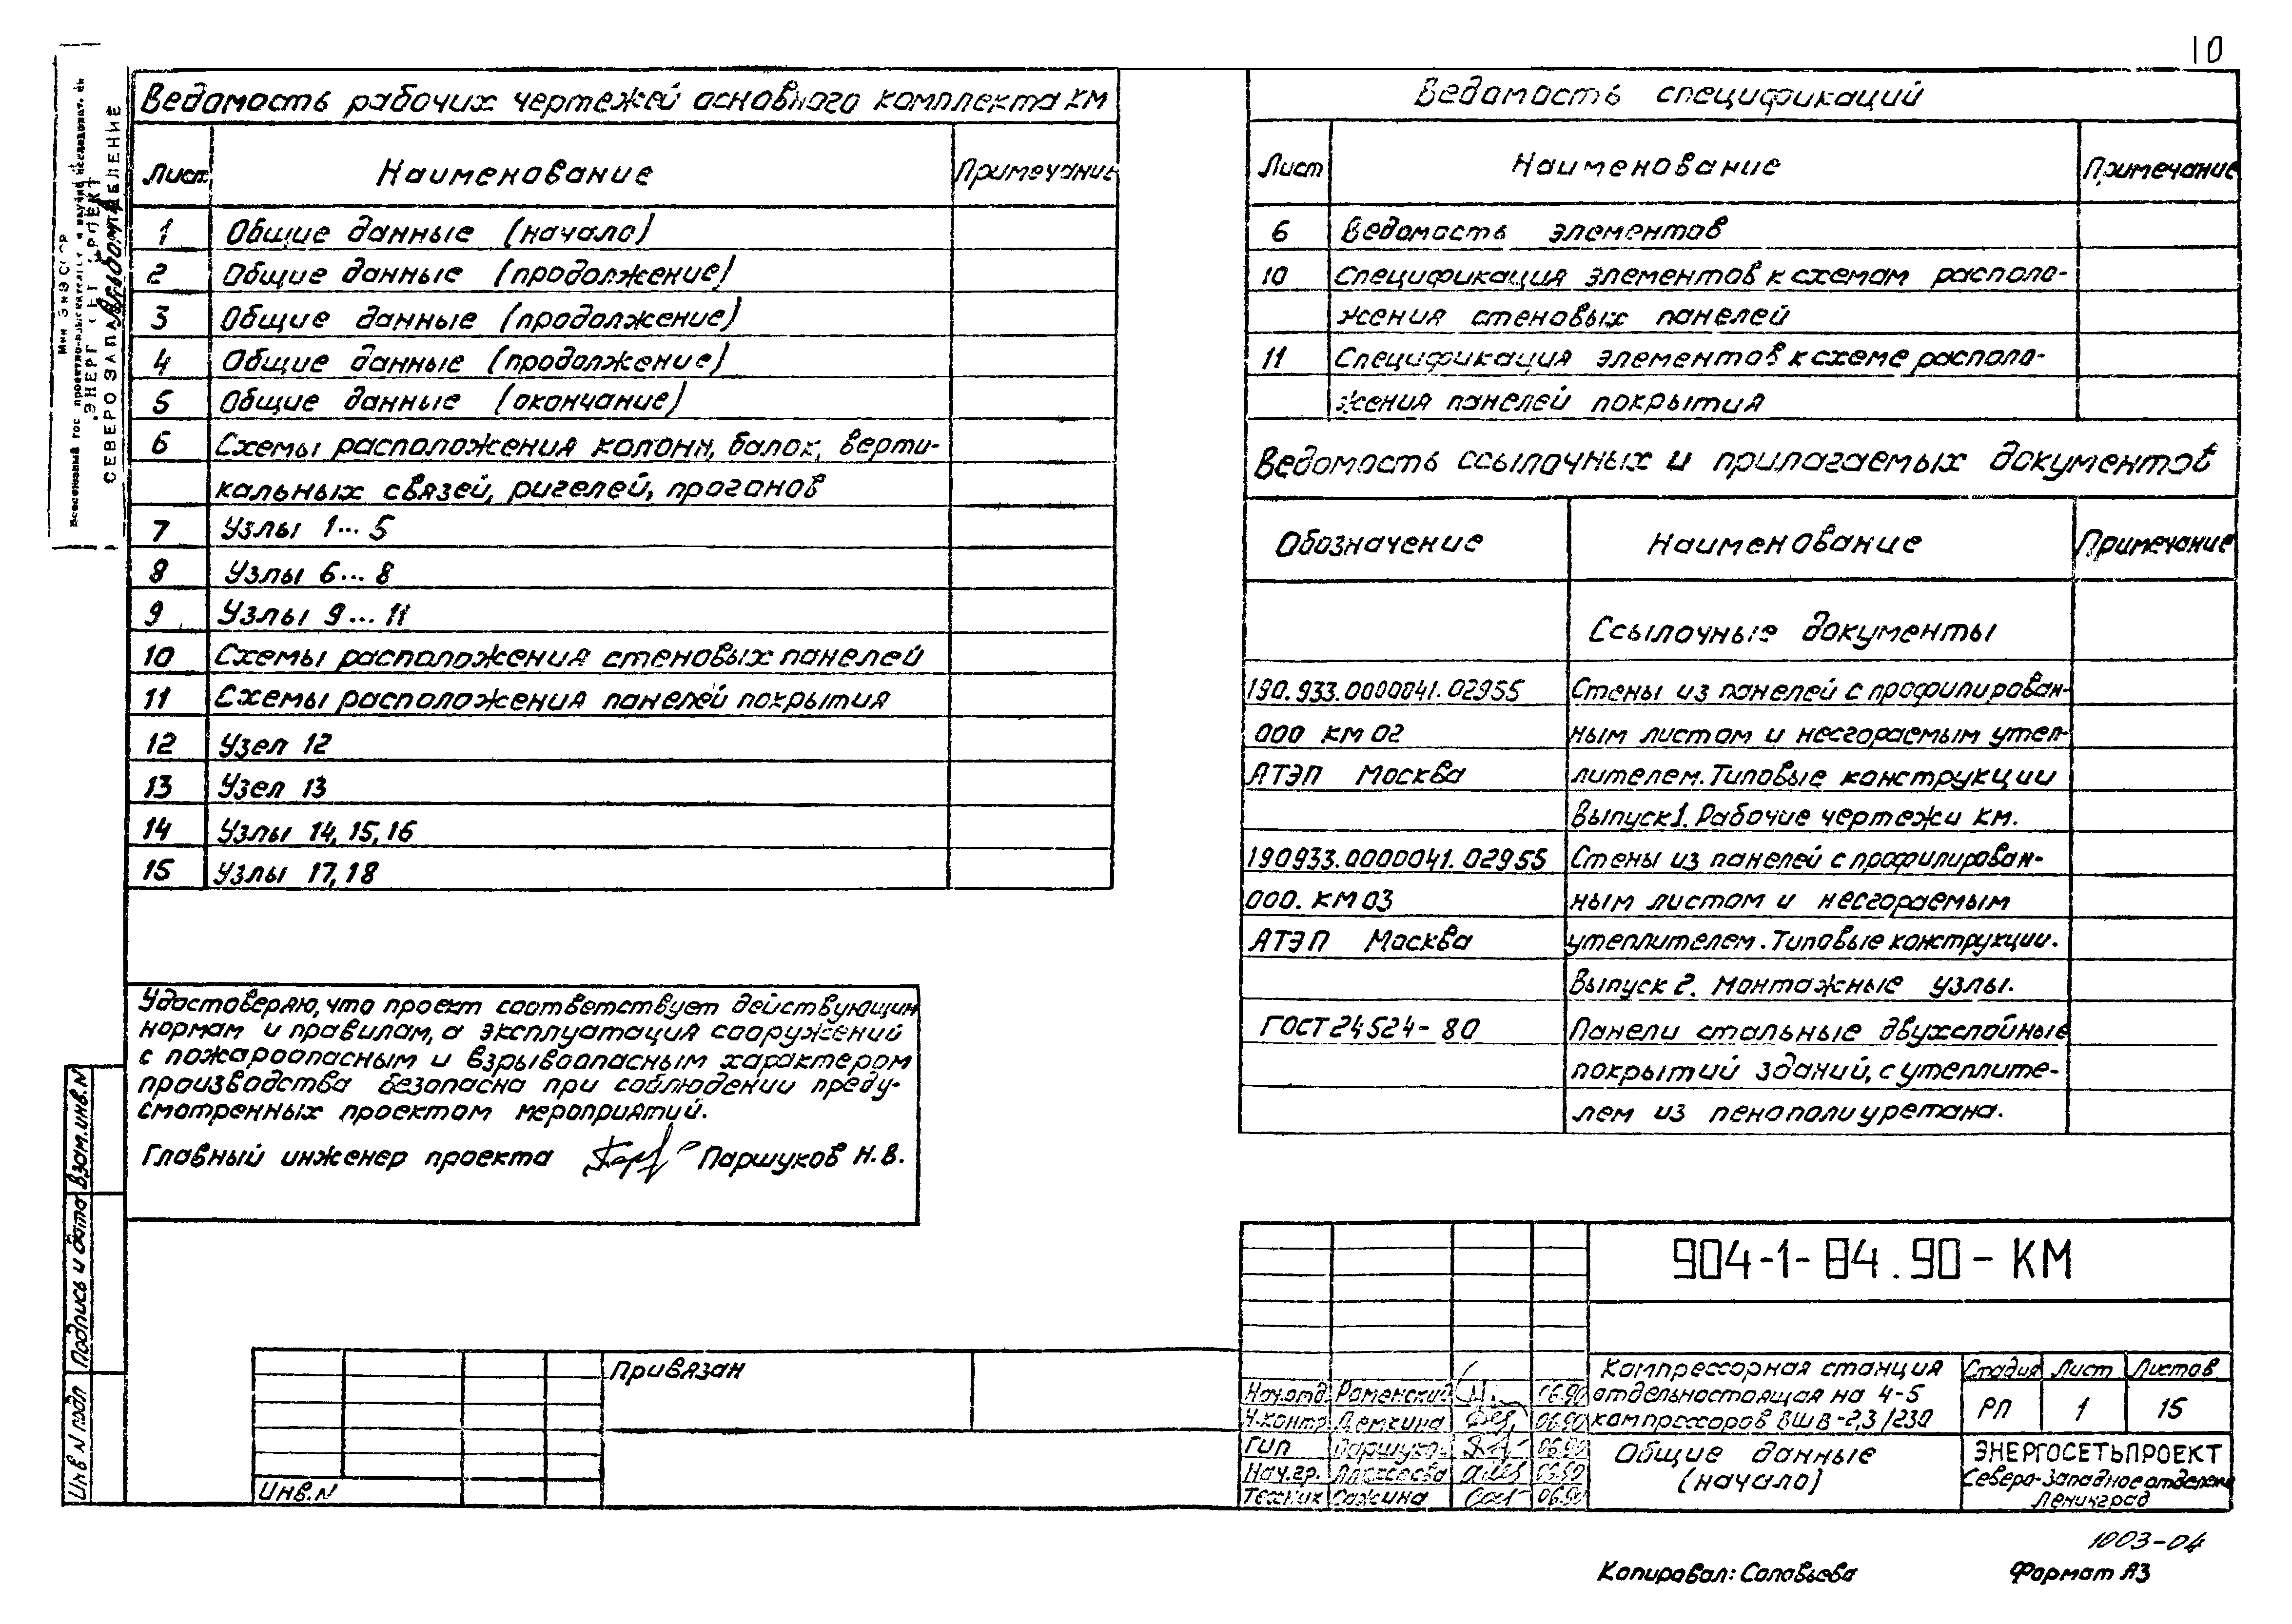 10
Ведомость рабочих чертежей основного комплекта КМ
Лист Наименование Примечание
1 Общие данные (начало)
2 Общие данные (продолжение)
3 Общие данные (продолжение)
4 Общие данные (продолжение)
5 Общие данные (окончание)
6 Схемы расположения колонн, балок, верти-
кальных связей, ригелей, прогонов
7 Узлы 1...5
8 Узлы 6...8
9 Узлы 9...11
10 Схемы расположения стеновых панелей
11 Схемы расположения панелей покрытия
12 Узел 12
13 Узел 13
14 Узлы 14, 15, 16
15 Узлы 17, 18
Удостоверяю, что проект соответствует действующим
нормам и правилам, а эксплуатация сооружений
с пожароопасным и взрывоопасным характером
производства безопасна при соблюдении преду-
смотренных проектом мероприятий.
Главный инженер проекта Паршуков Н.В.
Ведомость спецификаций
Лист Наименование Примечание
6 Ведомость элементов
10 Спецификация элементов к схемам располо-
жения стеновых панелей
11 Спецификация элементов к схеме располо-
жения панелей покрытия
Ведомость ссылочных и прилагаемых документов
Обозначение Наименование Примечание
Ссылочные документы
190.933.0000041.02955 Стены из панелей с профилирован-
000 КМ 02 ным листом и несгораемым утеп-
АТЭП Москва лителем. Типовые конструкции
Выпуск 1. Рабочие чертежи КМ.
190933.0000041.02955 Стены из панелей с профилирован-
000. КМ 03 ным листом и несгораемым
АТЭП Москва утеплителем. Типовые конструкции.
Выпуск 2. Монтажные узлы.
ГОСТ 24524-80 Панели стальные двухслойные
покрытий зданий, с утеплите-
лем из пенополиуретана.
904-1-84.90-КМ
Компрессорная станция
отдельностоящая на 4-5
компрессоров ВШВ-2,3/230
Стадия Лист Листов
РП 1 15
Нач.отд. Роменский 06.90
Н.контр. Демкина 06.90
ГИП Паршуков 06.90
Нач.гр. 06.90
Техник Сажина 06.90
Общие данные
(начало)
ЭНЕРГОСЕТЬПРОЕКТ
Северо-Западное отделение
Ленинград
Привязан
Инв.N
Взам.инв.N
Подпись и дата
Инв N подл
СЕВЕРОЗАПАДНОЕ ОТДЕЛЕНИЕ
1003-04
Копировал: Соловьева Формат А3